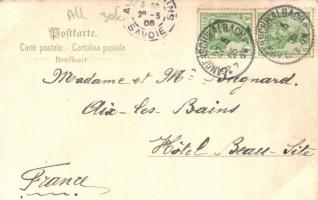 All 30k
Postkarte.
Carte postale. - Cartolina postale.
Brefkort.
AIX-LES-BAINS
29-5
06
SAVOIE
LANGENSCHWALBACH
Madame et Mr. Bugnard
Aix-les-Bains
Hôtel Beau-Site
France